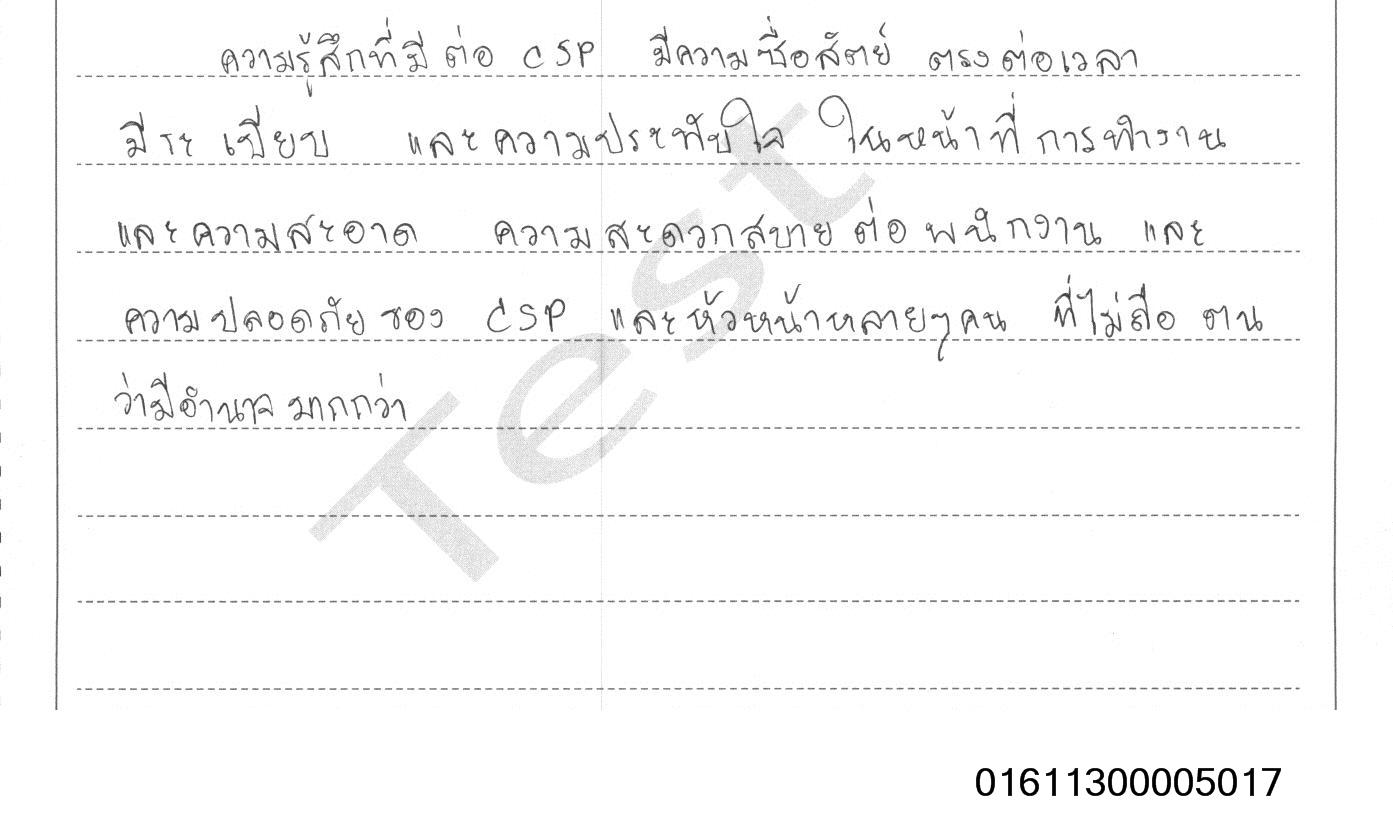 ความรู้สึกที่มีต่อ CSP มีความซื่อสัตย์ ตรงต่อเวลา
มีระเบียบ และความประทับใจ ในหน้าที่การทำงาน
และความสะอาด ความสะดวกสบายต่อพนักงาน และ
ความปลอดภัยของ CSP และหัวหน้าหลายๆคน ที่ไม่ถือตน
ว่ามีอำนาจมากกว่า
Test
01611300005017